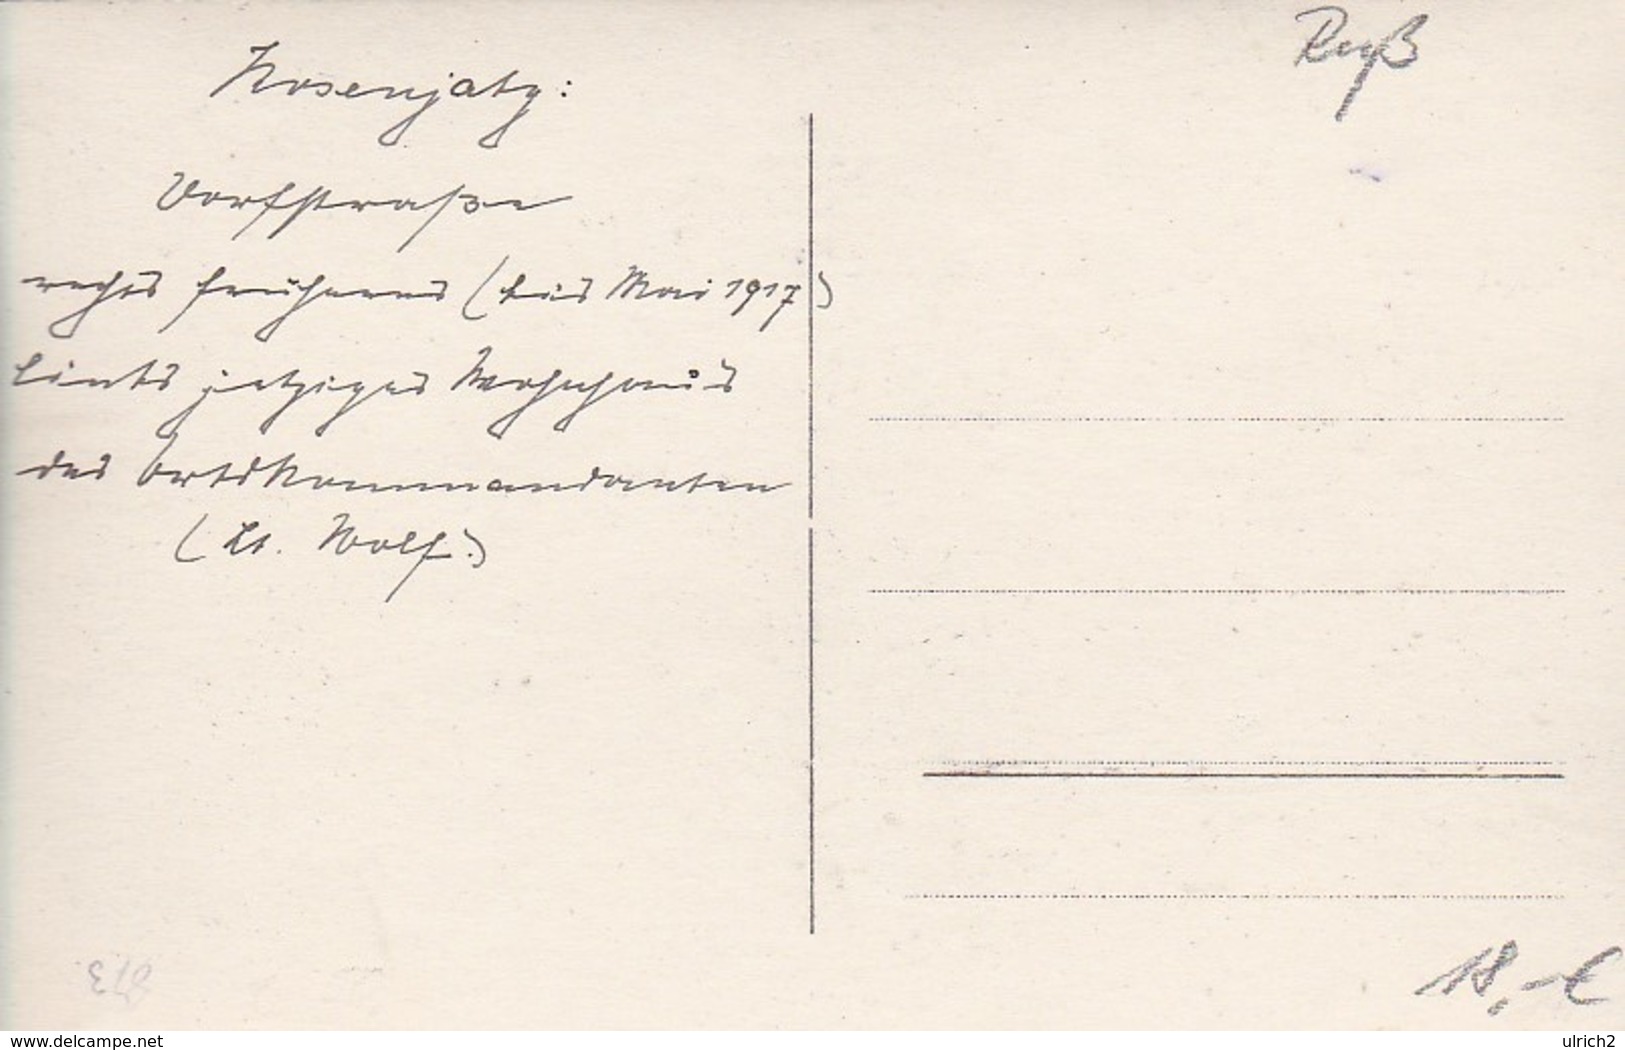 Kosenjaty:
Dorfstraße
rechts früheres (bis Mai 1917)
links jetziges Wohnhaus
des Ortskommandanten
(Lt. Wolf.)
Ruß
18,-€
delcampe.net
ulrich2